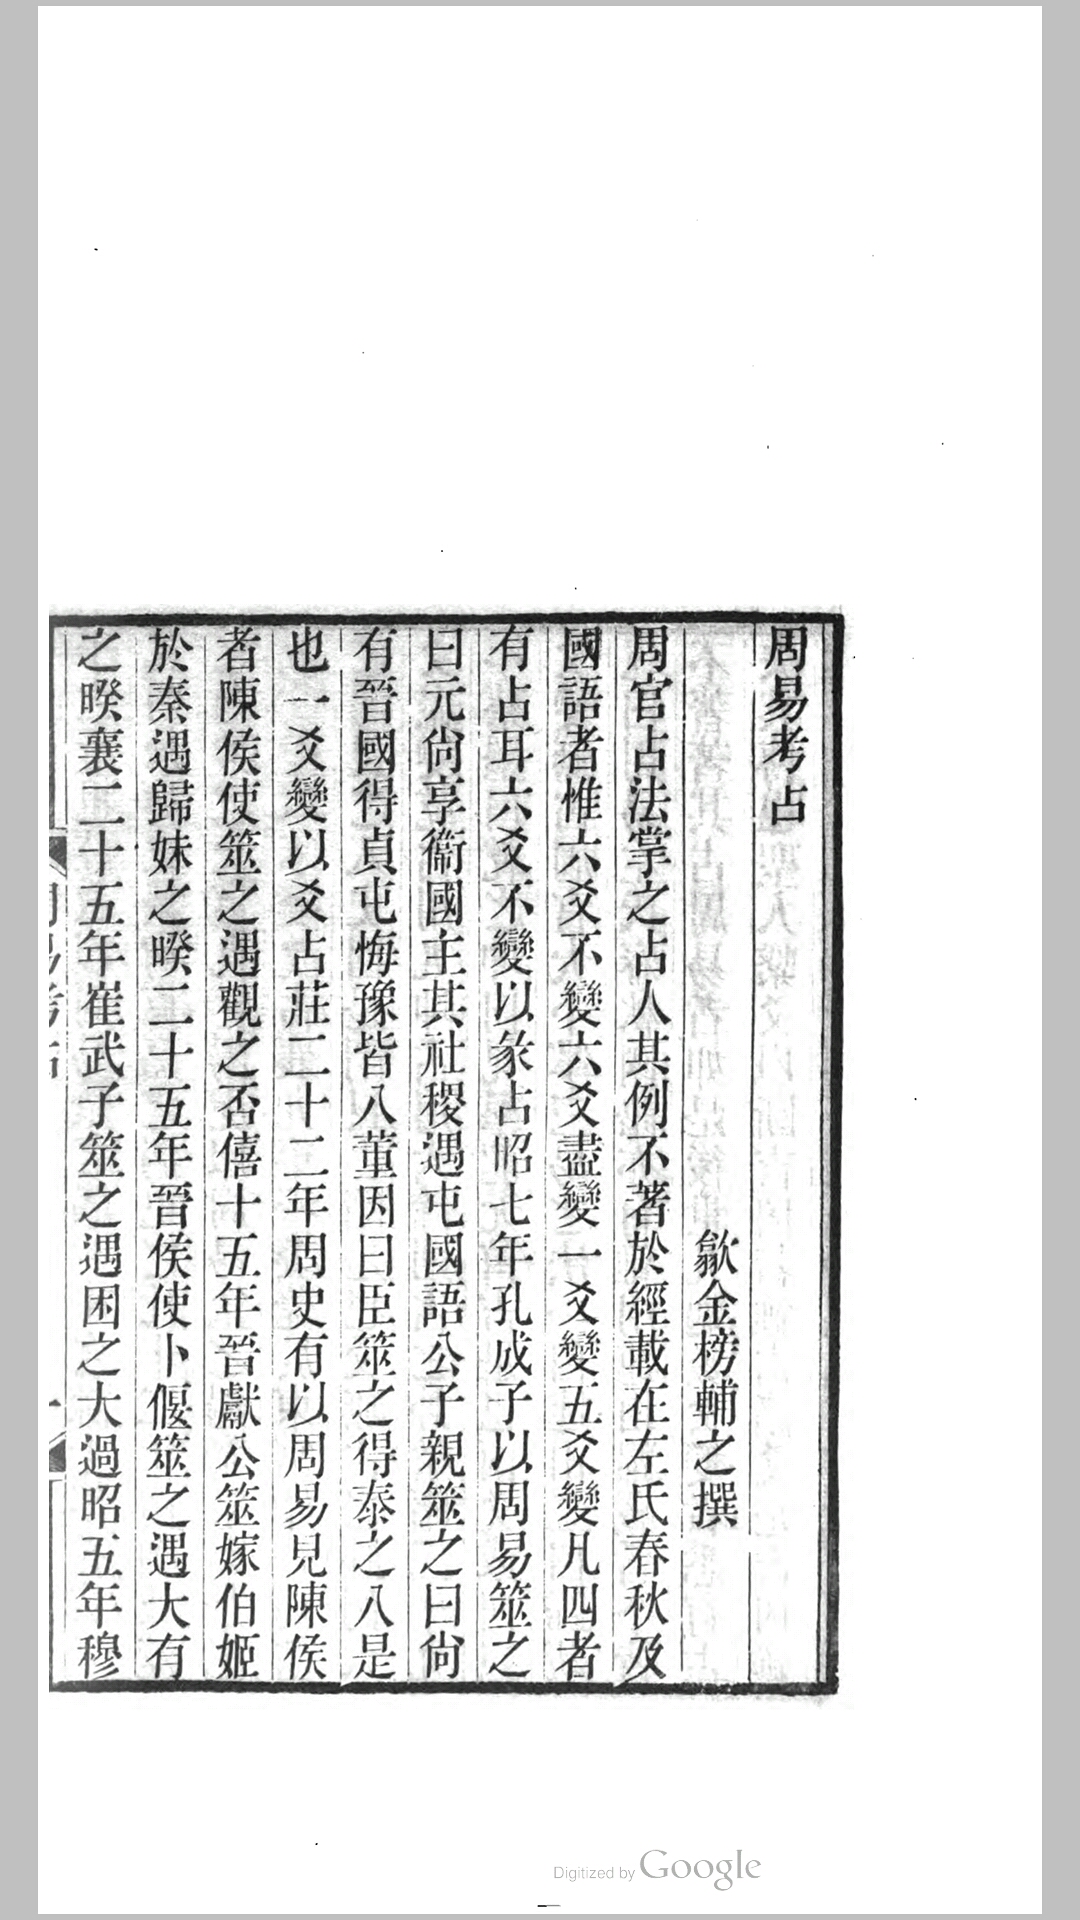 周易考占
歙金榜輔之撰
周官占法掌之占人其例不著於經載在左氏春秋及
國語者惟六爻不變六爻盡變一爻變五爻變凡四者
有占耳六爻不變以彖占昭七年孔成子以周易筮之
曰元尙享衞國主其社稷遇屯國語公子親筮之曰尙
有晉國得貞屯悔豫皆八董因曰臣筮之得泰之八是
也一爻變以爻占莊二十二年周史有以周易見陳侯
者陳侯使筮之遇觀之否僖十五年晉獻公筮嫁伯姬
於秦遇歸妹之睽二十五年晉侯使卜偃筮之遇大有
之睽襄二十五年崔武子筮之遇困之大過昭五年穆
Digitized by Google